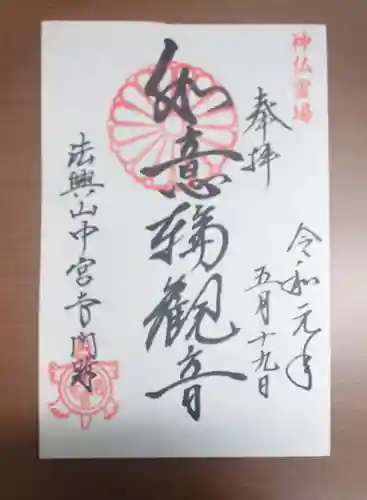 神仏霊場
奉拝
令和元年
五月十九日
如意輪観音
法興山中宮寺門跡